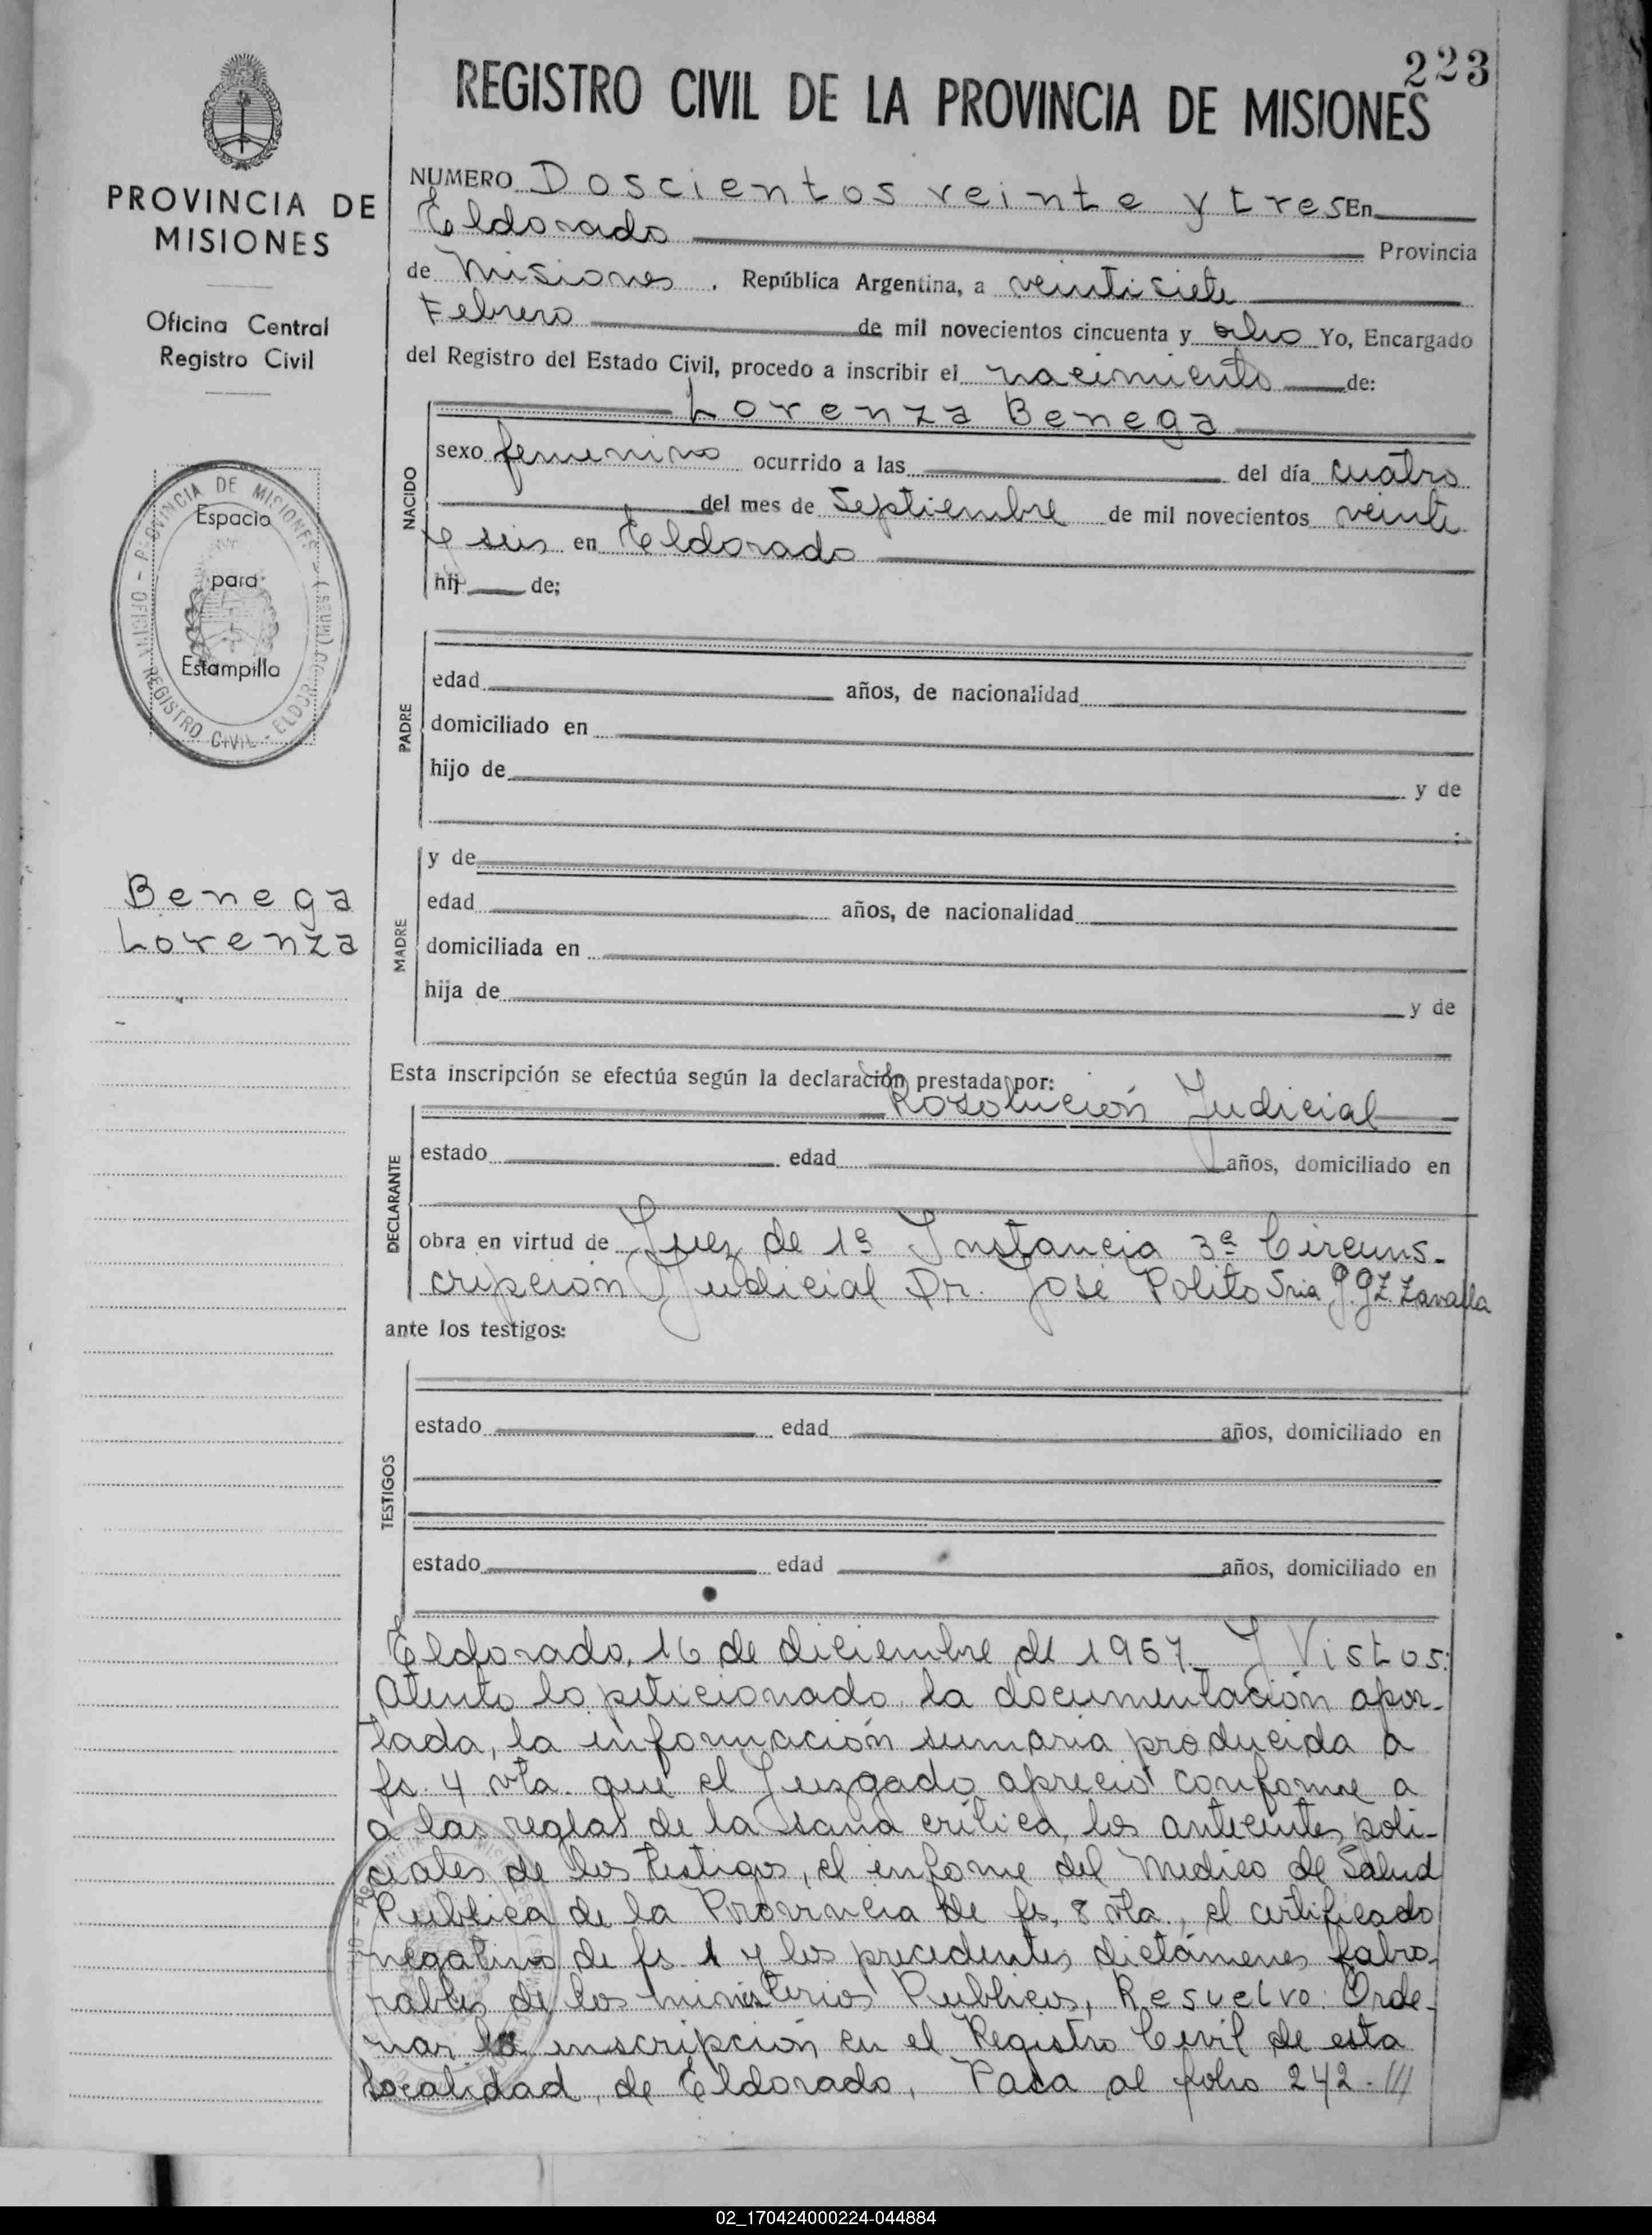 223
REGISTRO CIVIL DE LA PROVINCIA DE MISIONES
PROVINCIA DE
MISIONES
Oficina Central
Registro Civil
PROVINCIA DE MISIONES
Espacio
para
Estampilla
OFICINA REGISTRO CIVIL - ELDORADO (MNES.)
Benega
Lorenza
NUMERO Doscientos veinte y tres En
Eldorado Provincia
de Misiones . República Argentina, a veintisiete
Febrero de mil novecientos cincuenta y ocho Yo, Encargado
del Registro del Estado Civil, procedo a inscribir el nacimiento de:
NACIDO
Lorenza Benega
sexo femenino ocurrido a las del día cuatro
del mes de Septiembre de mil novecientos veinte
y seis en Eldorado
hij de;
PADRE
edad años, de nacionalidad
domiciliado en
hijo de y de
;
MADRE
y de
edad años, de nacionalidad
domiciliada en
hija de y de
Esta inscripción se efectúa según la declaración prestada por:
DECLARANTE
Rosolución Judicial
estado edad años, domiciliado en
obra en virtud de Juez de 1ª Instancia 3ª Circuns-
cripción Judicial Dr. José Polito Sria J. Gz Zavalla
ante los testigos:
TESTIGOS
estado edad años, domiciliado en
estado edad años, domiciliado en
Eldorado, 16 de diciembre de 1957. Y Vistos:
Atento lo peticionado la documentación apor-
tada, la información sumaria producida a
fs. 4 vta. que el Juzgado apreció conforme a
a las reglas de la sana crítica, los antecentes poli-
ciales de los testigos, el informe del Medico de Salud
Publica de la Provincia de fs. 8 vta., el certificado
negativo de fs. 1 y los precedentes dictámenes fabo-
rables de los ministerios Publicos, Resuelvo: Orde-
nar la inscripción en el Registro Civil de esta
localidad de Eldorado, Pasa al folio 242. ///
02_170424000224-044884